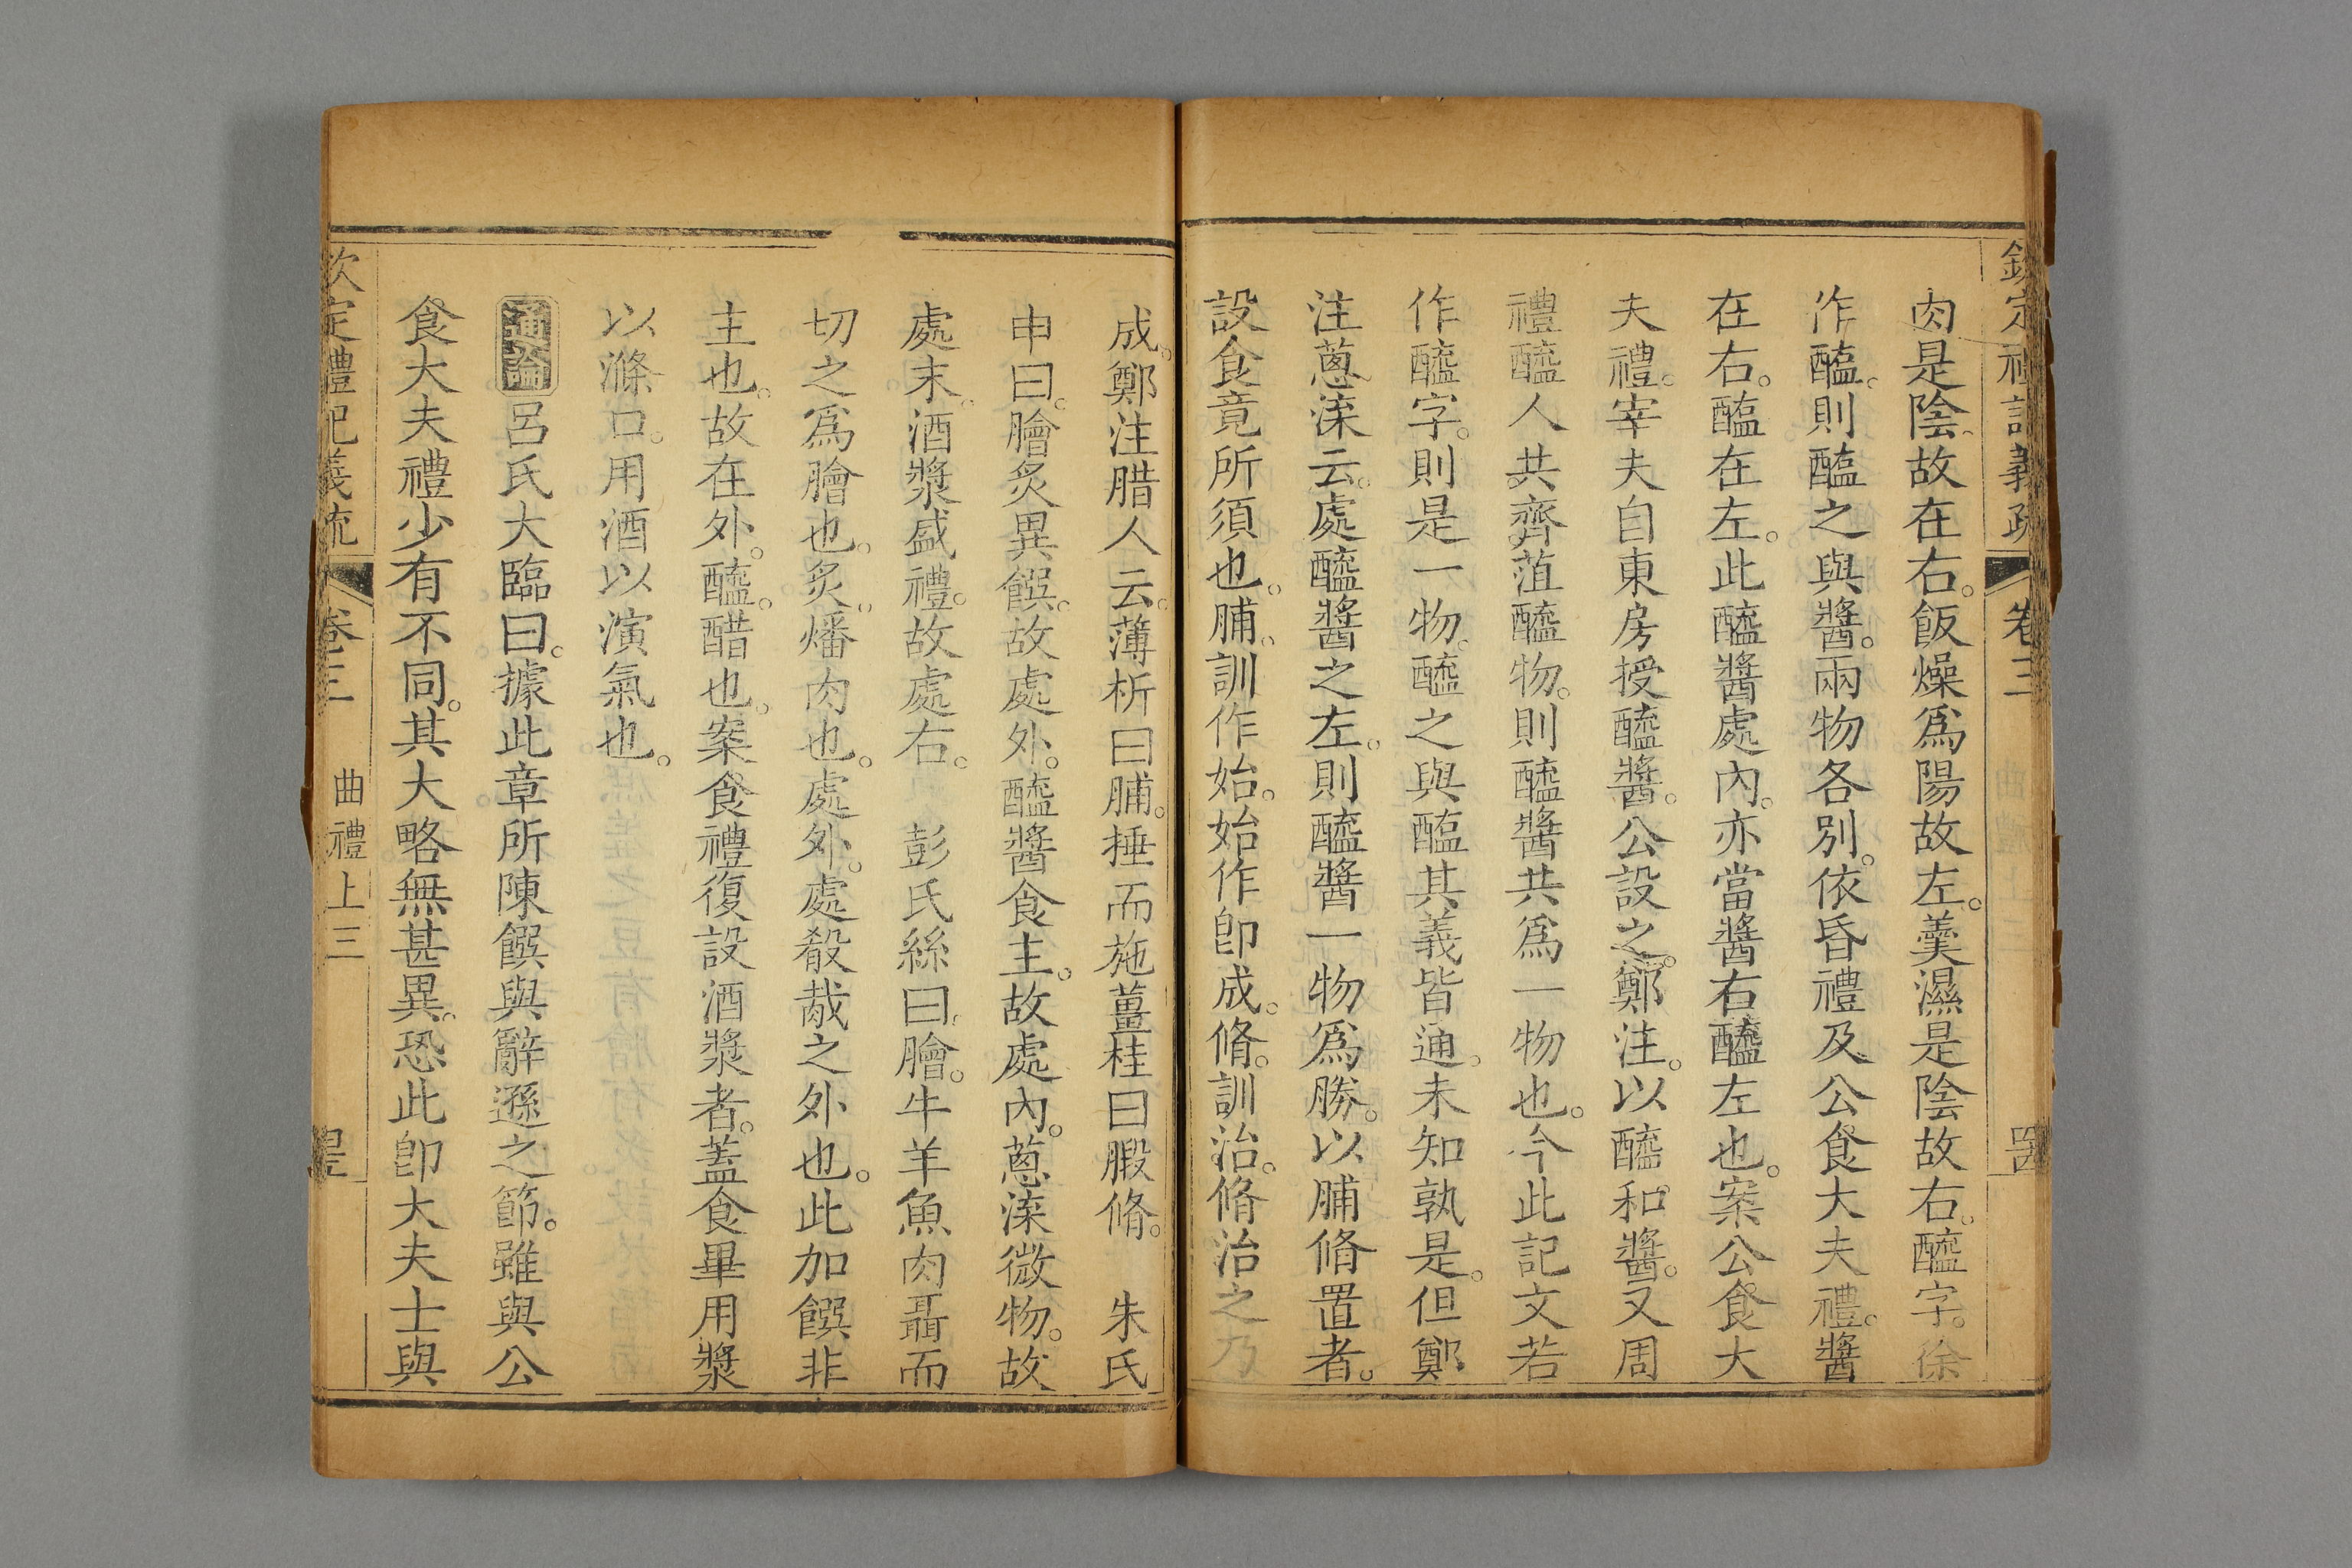 欽定禮記義疏 卷三
肉是陰故在右。飯燥爲陽故左。羹濕是陰故右。醯字。徐
作醢。則醢之與醬。兩物各別。依昏禮及公食大夫禮。醬
在右。醢在左。此醯醬處內。亦當醬右醯左也。案公食大
夫禮。宰夫自東房授醯醬。公設之。鄭注。以醯和醬。又周
禮醯人共齊菹醯物。則醯醬共爲一物也。今此記文若
作醯字。則是一物。醯之與醢其義皆通。未知孰是。但鄭
注蔥渫云。處醯醬之左。則醯醬一物爲勝。以脯脩置者。
設食竟所須也。脯。訓作始。始作卽成。脩。訓治。脩治之乃
成。鄭注腊人云。薄析曰脯。捶而施薑桂曰腶脩。 朱氏
申曰。膾炙異饌。故處外。醯醬食主。故處內。蔥渫微物。故
處末。酒漿盛禮。故處右。 彭氏絲曰。膾。牛羊魚肉聶而
切之爲膾也。炙。燔肉也。處外。處殽胾之外也。此加饌非
主也。故在外。醯。醋也。案食禮復設酒漿者。蓋食畢用漿
以滌口。用酒以演氣也。
通論 呂氏大臨曰。據此章所陳饌與辭遜之節。雖與公
食大夫禮少有不同。其大略無甚異。恐此卽大夫士與
欽定禮記義疏 卷三 曲禮上三